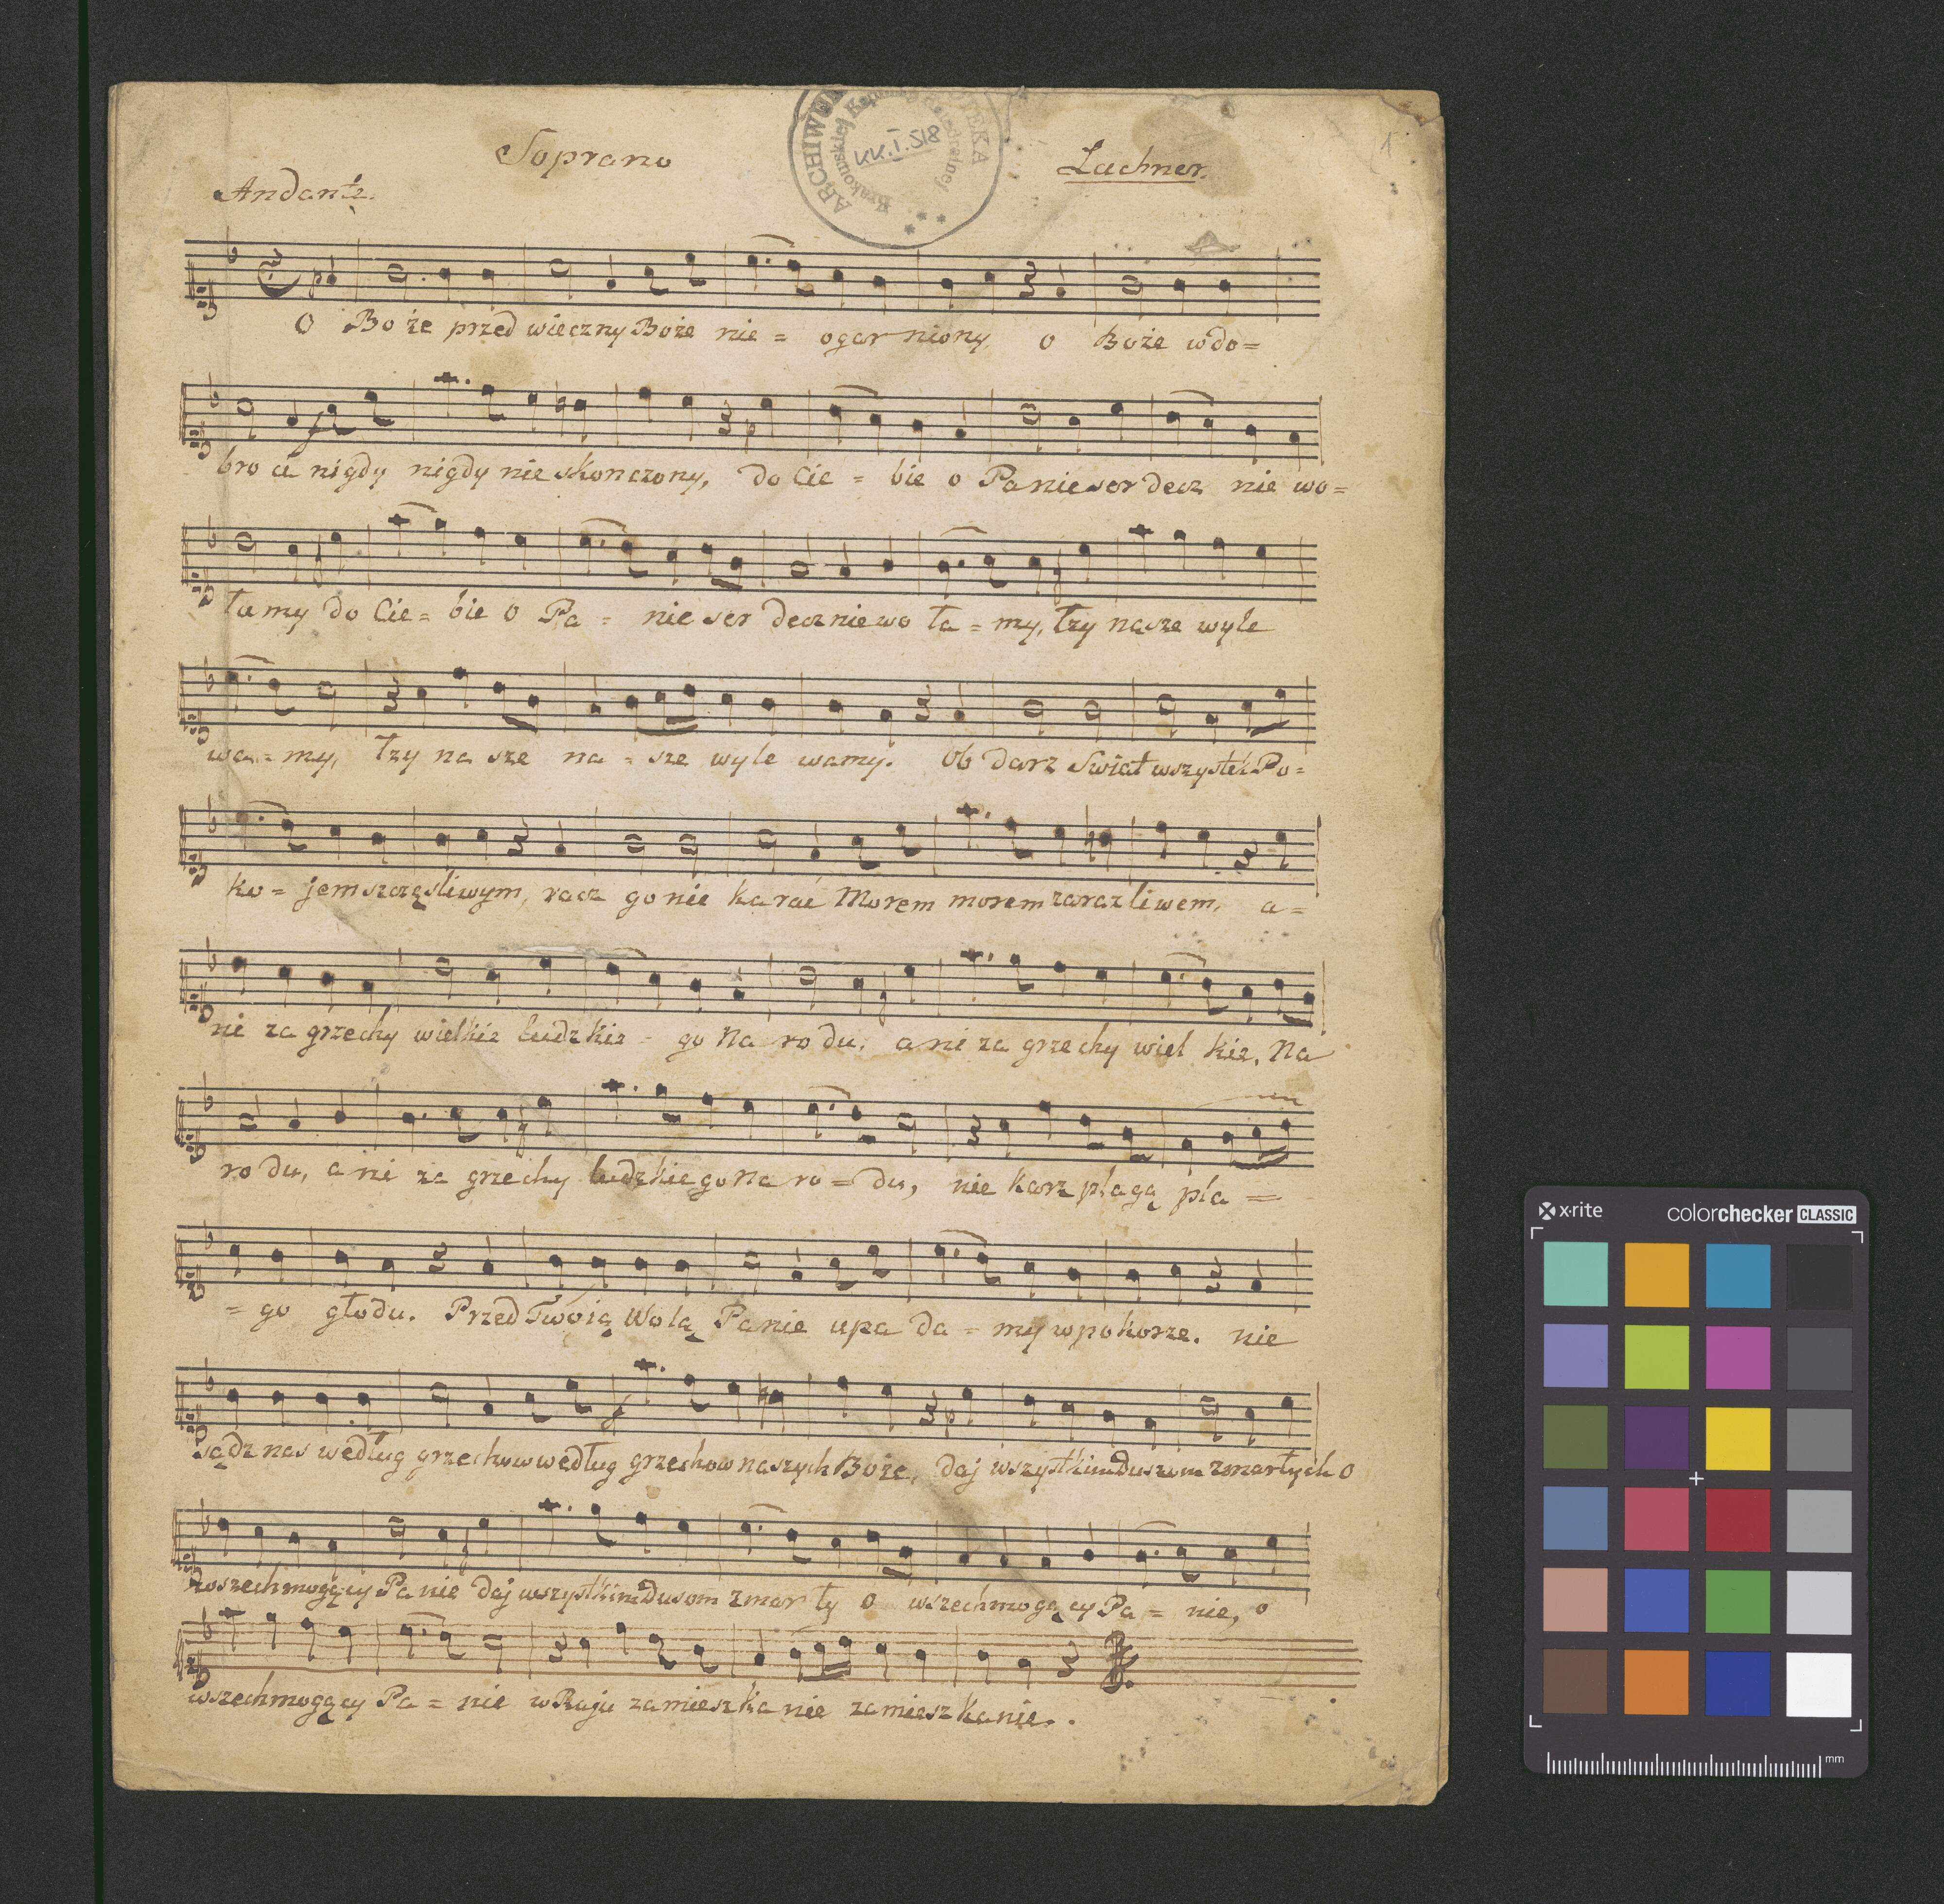 Soprano
Lachner.
1
Andante.
ARCHIWUM
Krakowskiej Kapituły Katedralnej
KK.I.518
O Bo że przed wieczny Boże nie = ogar niony, o Boże w do=
bro ci nigdy nigdy nie skonczony, do Cie = bie o Panie ser decz nie wo=
ła my do Cie = bie o Pa = nie ser decz nie wo ła = my, łzy nasze wyle
wa = my, łzy na sze na = sze wyle wamy. Ob darz Swiat wszystek Po=
ko = jem szczęsliwym, racz go nie karać Morem morem zarazliwem, a=
ni za grzechy wielkie ludzkie = go Na ro du, a ni za grzechy wiel kie, Na
ro du, a ni za grzechy ludzkiego Na ro = du, nie karz plagą pla =
= go głodu. Przed Twoią Wolą Panie upa da = my w pokorze. nie
sądz nas według grzechow według grzechow naszych Boże, daj wszystkim duszom zmarłych o
wszechmogący Pa nie daj wszystkim dusom zmar ły o wszechmogący Pa = nie, o
wszechmogący Pa = nie w Raju zamieszka nie zamiesz kanie.
x·rite
colorchecker CLASSIC
mm